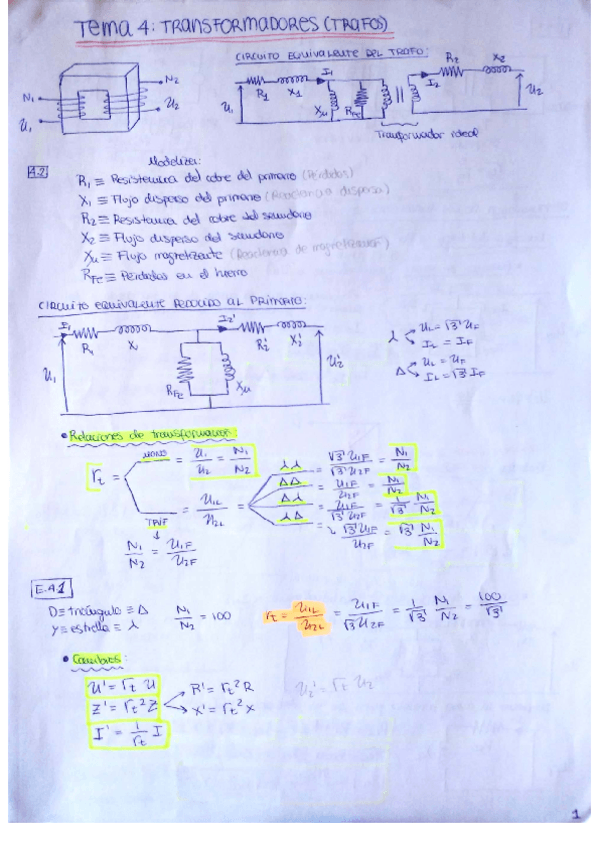 Tema 4: TRANSFORMADORES (TRAFOS)
CIRCUITO EQUIVALENTE DEL TRAFO:
N₁ U₁ N₂ U₂
U₁ R₁ X₁ I₁ Xμ R_Fe I₂ R₂ X₂ U₂
Transformador ideal
4.2 Modeliza:
R₁ ≡ Resistencia del cobre del primario (Pérdidas)
X₁ ≡ Flujo disperso del primario (Reactancia dispersa)
R₂ ≡ Resistencia del cobre del secundario
X₂ ≡ Flujo disperso del secundario
Xμ ≡ Flujo magnetizante (Reactancia de magnetización)
R_Fe ≡ Pérdidas en el hierro
CIRCUITO EQUIVALENTE REDUCIDO AL PRIMARIO:
I₁ R₁ X₁ I₂' R₂' X₂'
U₁ R_Fe Xμ U₂'
⅄ U_L = √3 U_F
I_L = I_F
Δ U_L = U_F
I_L = √3 I_F
• Relaciones de transformación:
r_t = MONO = U₁/U₂ = N₁/N₂
TRIF = U₁L/U₂L
⅄⅄ = √3 U₁F/√3 U₂F = N₁/N₂
ΔΔ = U₁F/U₂F = N₁/N₂
Δ⅄ = U₁F/√3 U₂F = 1/√3 N₁/N₂
⅄Δ = √3 U₁F/U₂F = √3 N₁/N₂
N₁/N₂ = U₁F/U₂F
E.4.1
D ≡ triángulo ≡ Δ
Y ≡ estrella ≡ ⅄
N₁/N₂ = 100
r_t = U₁L/U₂L = U₁F/√3 U₂F = 1/√3 N₁/N₂ = 100/√3
• Cambios:
U' = r_t U
Z' = r_t² Z
R' = r_t² R
X' = r_t² X
I' = 1/r_t I
U₂' = r_t U₂
1